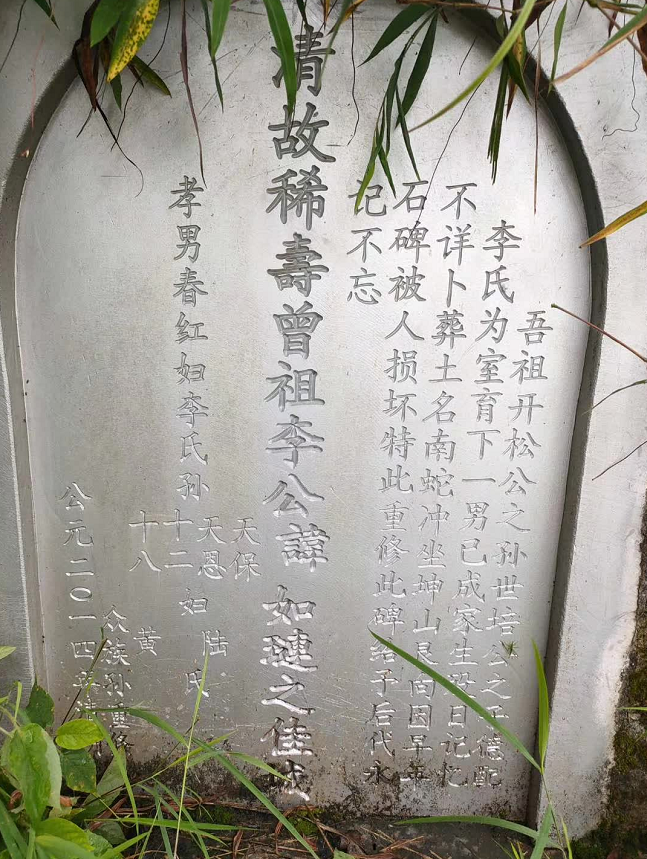 吾祖开松公之孙世培公之子德配
李氏为室育下一男已成家生殁日记忆
不详卜葬土名南蛇冲坐坤山艮向因早年
石碑被人损坏特此重修此碑给予后代永
记不忘
清故稀壽曾祖李公諱 如璉之佳城
孝男春红妇李氏孙
天保
天恩
十二
十八
妇
陆
黄
氏
众族孙重修
公元二〇一四年清